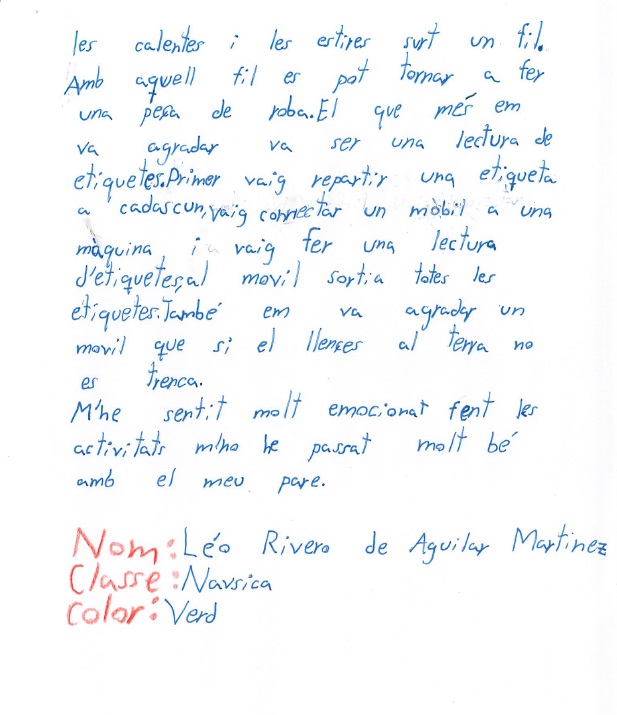 les calentes i les estires surt un fil.
Amb aquell fil es pot tornar a fer
una peça de roba.El que més em
va agradar va ser una lectura de
etiquetes.Primer vaig repartir una etiqueta
a cadascun,vaig connectar un mobil a una
màquina i vaig fer una lectura
d'etiquetes,al movil sortia totes les
etiquetes.També em va agradar un
movil que si el llences al terra no
es trenca.
M'he sentit molt emocionat fent les
activitats m'ho he passat molt bé
amb el meu pare.
Nom:Léo Rivero de Aguilar Martinez
Classe:Navsica
Color:Verd